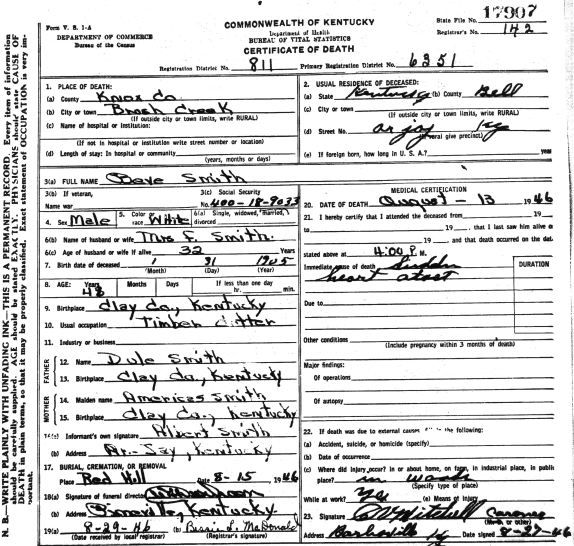 Form V. S. 1-A
DEPARTMENT OF COMMERCE
Bureau of the Census
COMMONWEALTH OF KENTUCKY
Department of Health
BUREAU OF VITAL STATISTICS
CERTIFICATE OF DEATH
State File No. 17907
Registrar's No. 142
Registration District No. 811 Primary Registration District No. 6351
N. B. WRITE PLAINLY WITH UNFADING INK—THIS IS A PERMANENT RECORD. Every item of information
should be carefully supplied. AGE should be stated EXACTLY. PHYSICIANS should state CAUSE OF
DEATH in plain terms, so that it may be properly classified. Exact statement of OCCUPATION is very im-
portant.
1. PLACE OF DEATH:
(a) County Knox Co
(b) City or town Brush Creek
(If outside city or town limits, write RURAL)
(c) Name of hospital or institution:
(If not in hospital or institution write street number or location)
(d) Length of stay: In hospital or community
(years, months or days)
2. USUAL RESIDENCE OF DECEASED:
(a) State Kentucky (b) County Bell
(c) City or town
(If outside city or town limits, write RURAL)
(d) Street No. ar jay Ky
(If rural give precinct)
(e) If foreign born, how long in U. S. A.? years
3(a) FULL NAME Dave Smith
3(b) If veteran,
Name war
3(c) Social Security
No. 400-18-9033
4. Sex Male 5. Color or race White 6(a) Single, widowed, married, divorced
6(b) Name of husband or wife Mrs F. Smith
6(c) Age of husband or wife if alive 32 Years
7. Birth date of deceased 1 31 1905
(Month) (Day) (Year)
8. AGE: Years 48 Months Days If less than one day
hr. min.
9. Birthplace Clay Co., Kentucky
10. Usual occupation Timber Cutter
11. Industry or business
FATHER
12. Name Dule Smith
13. Birthplace Clay Co., Kentucky
MOTHER
14. Maiden name Americas Smith
15. Birthplace Clay Co., Kentucky
(a) Informant's own signature Albert Smith
(b) Address Ar-Jay, Kentucky
17. BURIAL, CREMATION, OR REMOVAL
Place Red Hill Date 8-15 1946
18(a) Signature of funeral director
(b) Address Kentucky.
19(a) 8-29-46 (b) Bessie L. McDonald
(Date received by local registrar) (Registrar's signature)
MEDICAL CERTIFICATION
20. DATE OF DEATH August-13 1946
21. I hereby certify that I attended the deceased from 19
19 , that I last saw him alive on
19 , and that death occurred on the date
stated above at 4:00 P. M.
Immediate cause of death Suddn
heart atact
DURATION
Due to
Other conditions
(Include pregnancy within 3 months of death)
Major findings:
Of operations
Of autopsy
22. If death was due to external causes, the following:
(a) Accident, suicide, or homicide (specify)
(b) Date of occurrence
(c) Where did injury occur? in or about home, on farm, in industrial place, in public
place? in woods
(Specify type of place)
While at work? Yes (e) Means of injury
23. Signature Mitchell Coroner
(M. D. or other)
Address Barbville Ky Date signed 8-27-46